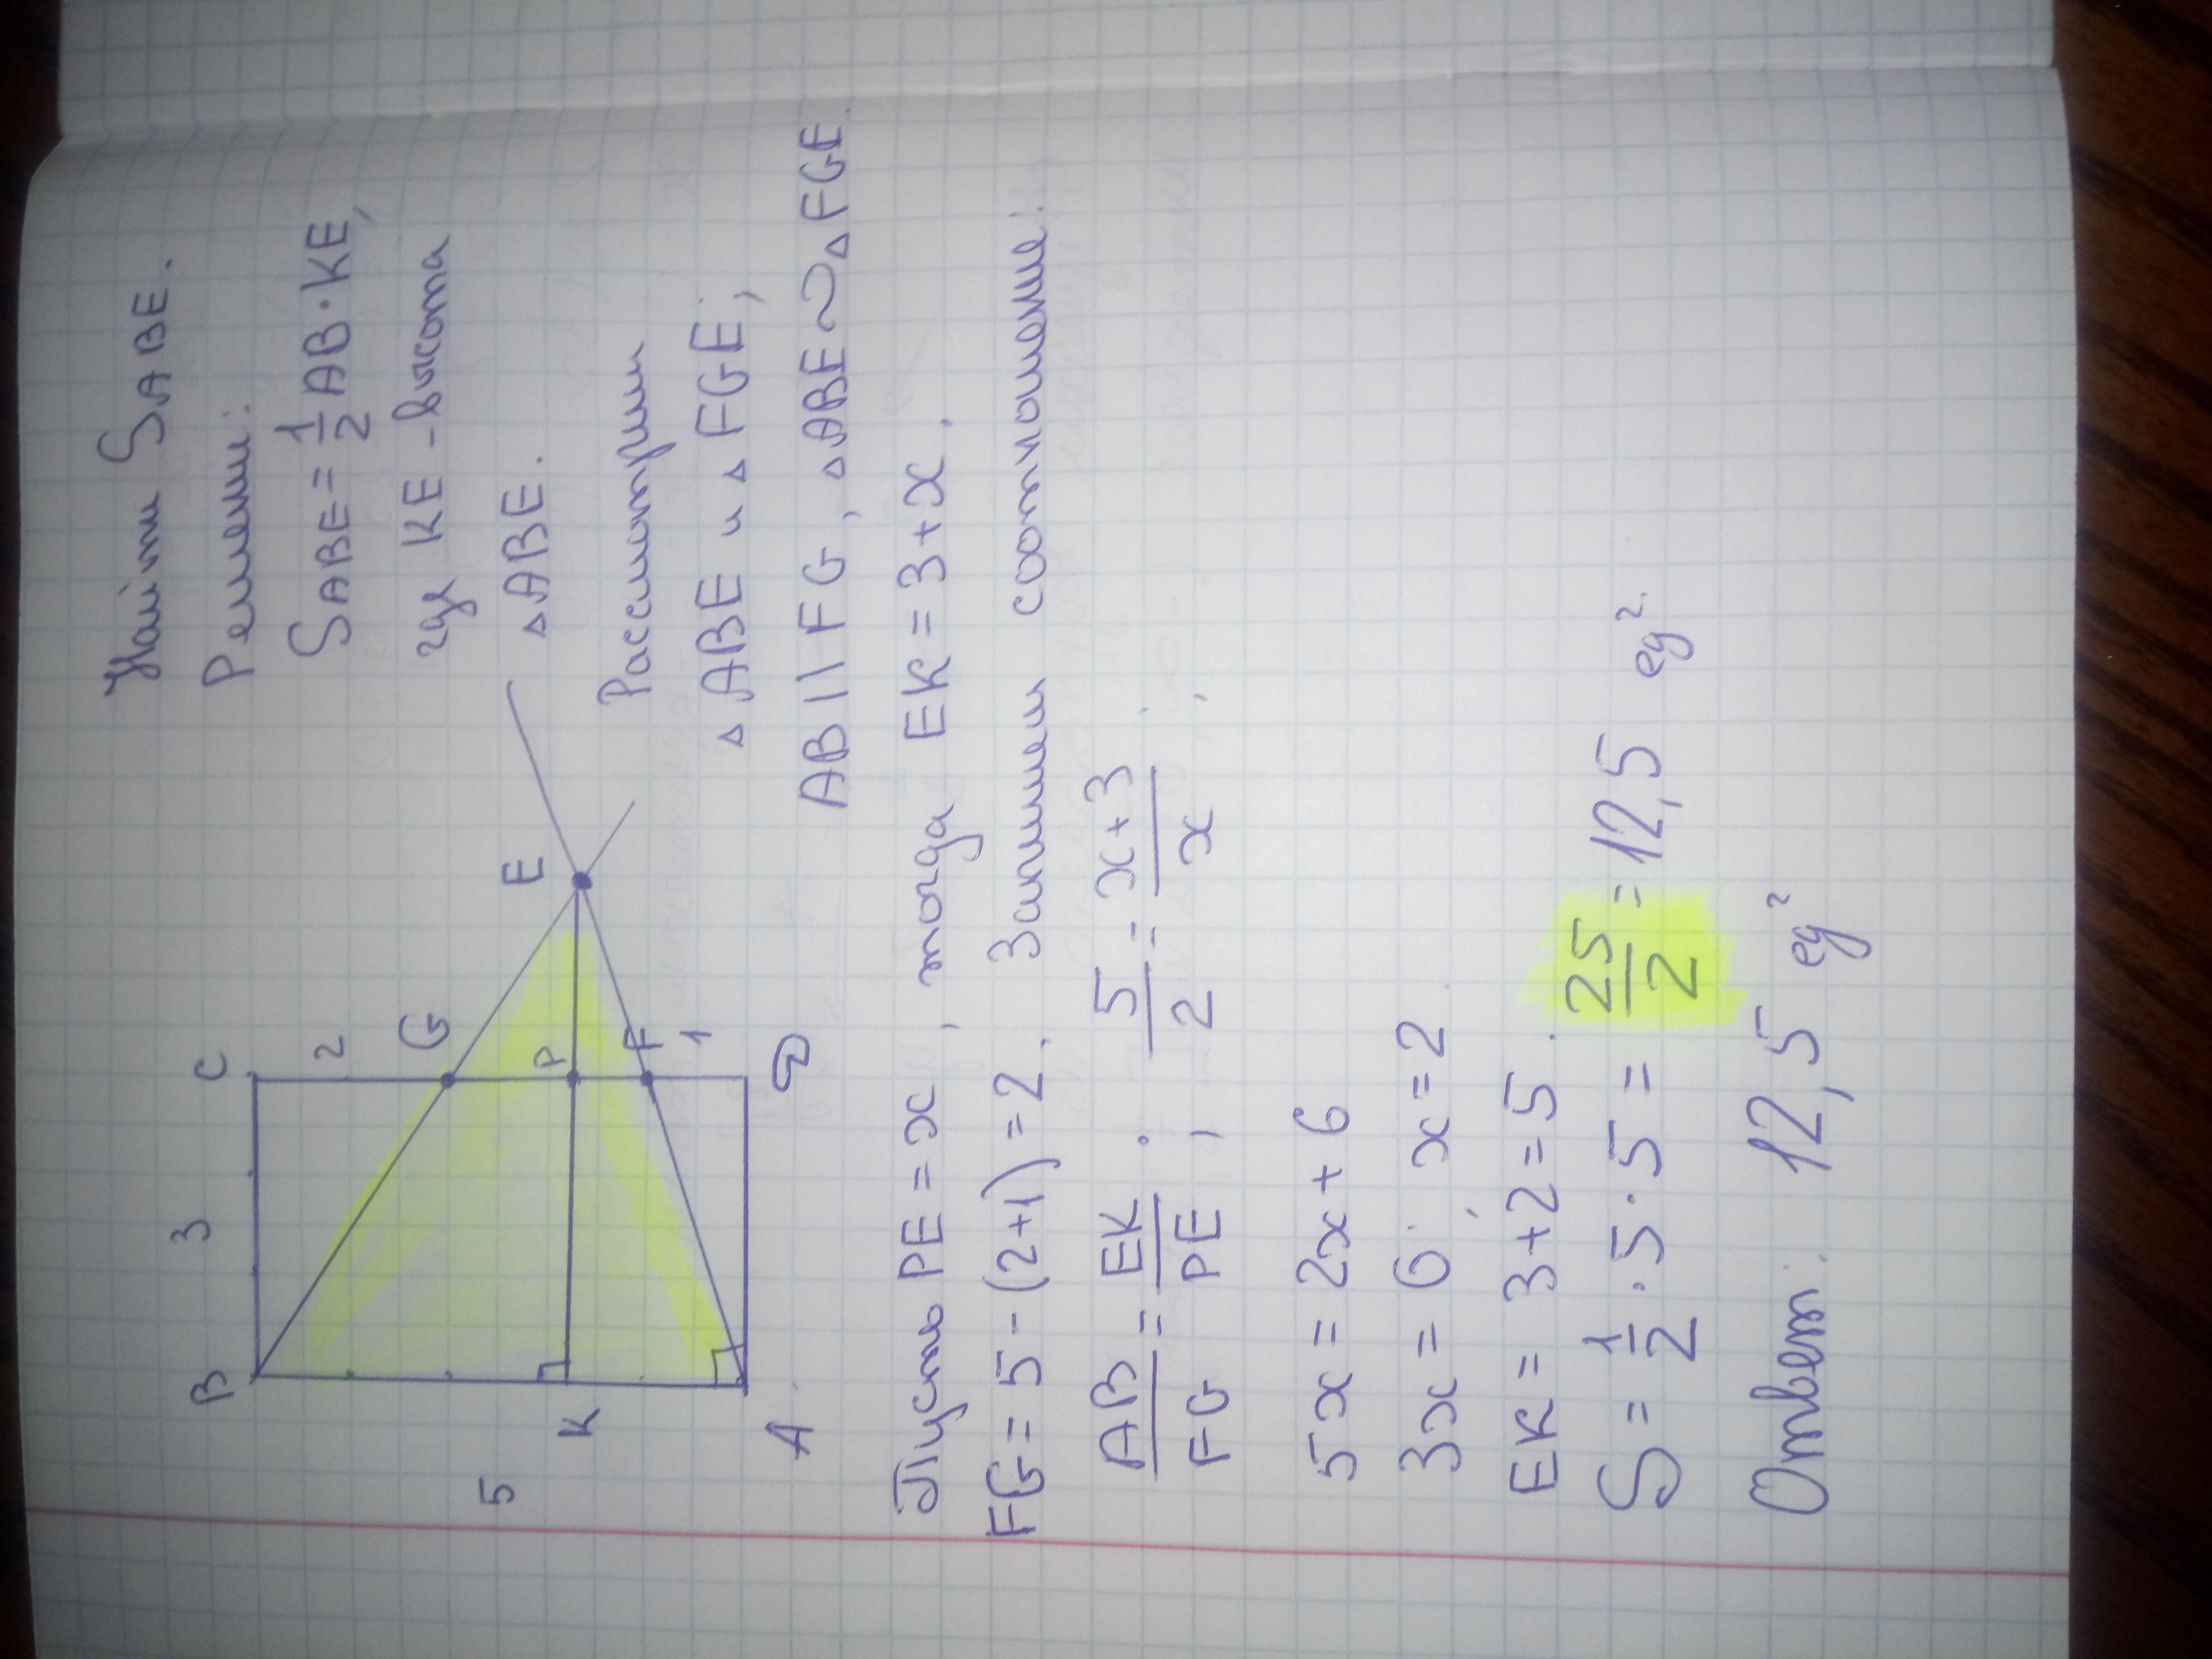 Найти SABE.
Решение:
SABE = 1/2 AB · KE,
где KE - высота
△ABE.
B 3 C
2
G
E
5
K P
F
1
A D
Рассмотрим
△ABE и △FGE;
AB || FG, △ABE ~ △FGE.
Пусть PE = x, тогда EK = 3 + x.
FG = 5 - (2+1) = 2. Запишем соотношение:
AB/FG = EK/PE; 5/2 = x+3/x;
5x = 2x + 6
3x = 6; x = 2
EK = 3 + 2 = 5.
S = 1/2 · 5 · 5 = 25/2 = 12,5 ед².
Ответ: 12,5 ед²